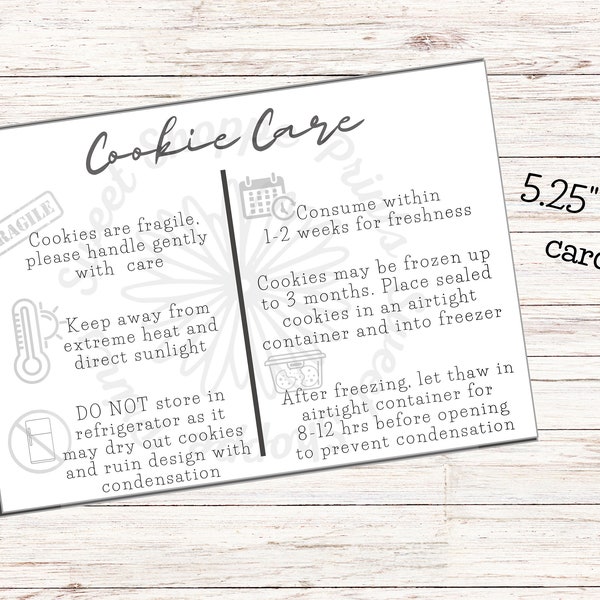 Cookie Care
FRAGILE
Cookies are fragile.
please handle gently
with care
Keep away from
extreme heat and
direct sunlight
DO NOT store in
refrigerator as it
may dry out cookies
and ruin design with
condensation
Consume within
1-2 weeks for freshness
Cookies may be frozen up
to 3 months. Place sealed
cookies in an airtight
container and into freezer
After freezing, let thaw in
airtight container for
8-12 hrs before opening
to prevent condensation
5.25"
card